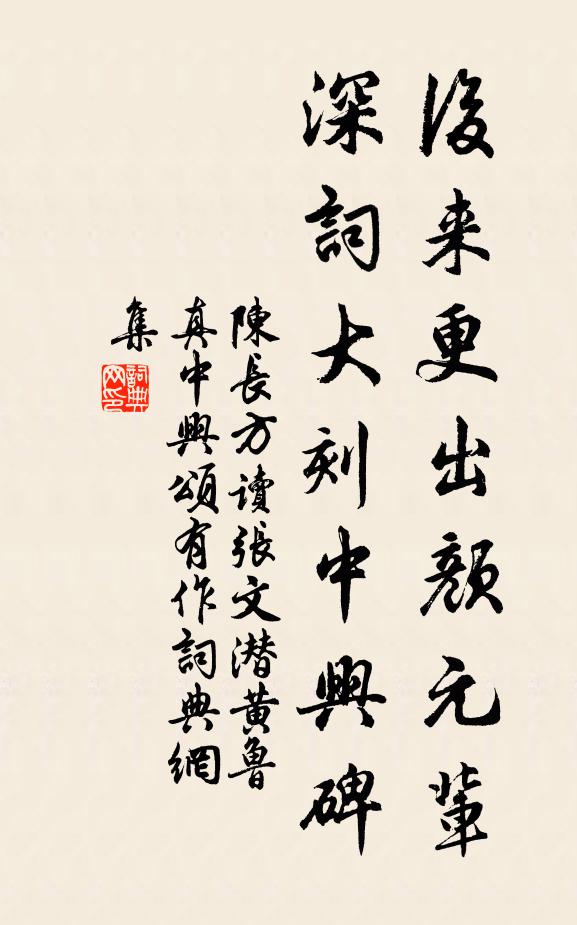 後来更出顔元輩
深詞大刻中興碑
陳長方讀張文潜黄魯
真中興頌有作詞典網
集
詞典網印